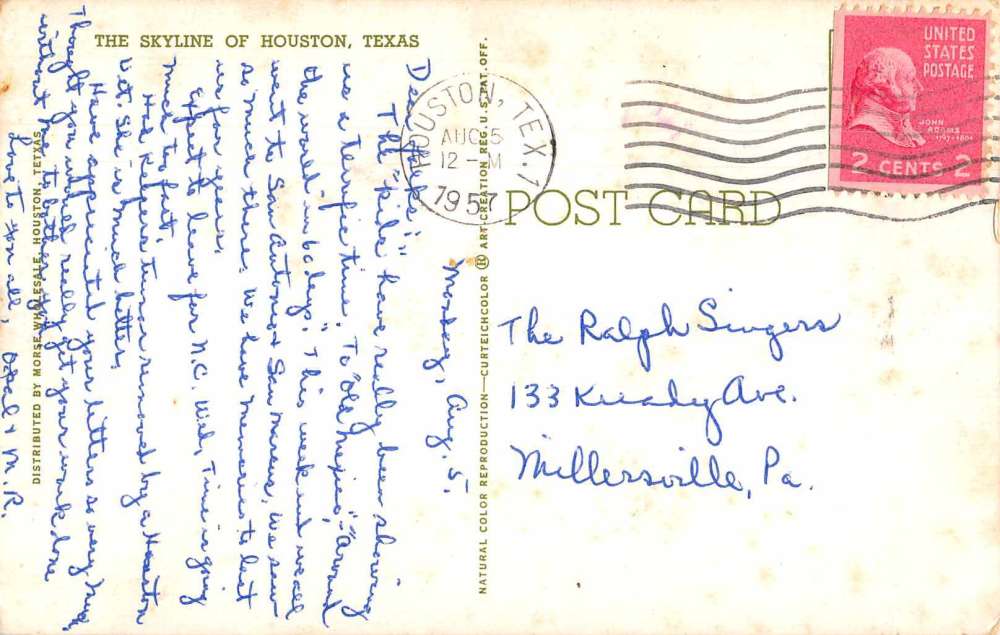 THE SKYLINE OF HOUSTON, TEXAS
Monday, Aug. 5.
Dear
The "kids" have really been showing
us a terrific time. To "Old Mexico," "Around
the world in 80 days." This weekend we all
went to San Antonio & San Marcus. We saw
so much there. We have memories to last
us for years.
Expect to leave for N.C. Wed. Time is going
much to fast.
Had tumor removed by a Houston
Vet. She is much better.
Have appreciated your letters so very much.
Thought you would really get your work done
without me to bother you.
Love to you all,
Opal & M.R.
DISTRIBUTED BY MORSE WHOLESALE, HOUSTON, TETXAS
NATURAL COLOR REPRODUCTION—CURTEICHCOLOR ® ART-CREATION REG. U.S. PAT. OFF.
HOUSTON, TEX. 1
AUG 5
12 - M
1957
UNITED
STATES
POSTAGE
JOHN
ADAMS
1797-1801
2 CENTS 2
POST CARD
The Ralph Singers
133 Kready Ave.
Millersville, Pa.